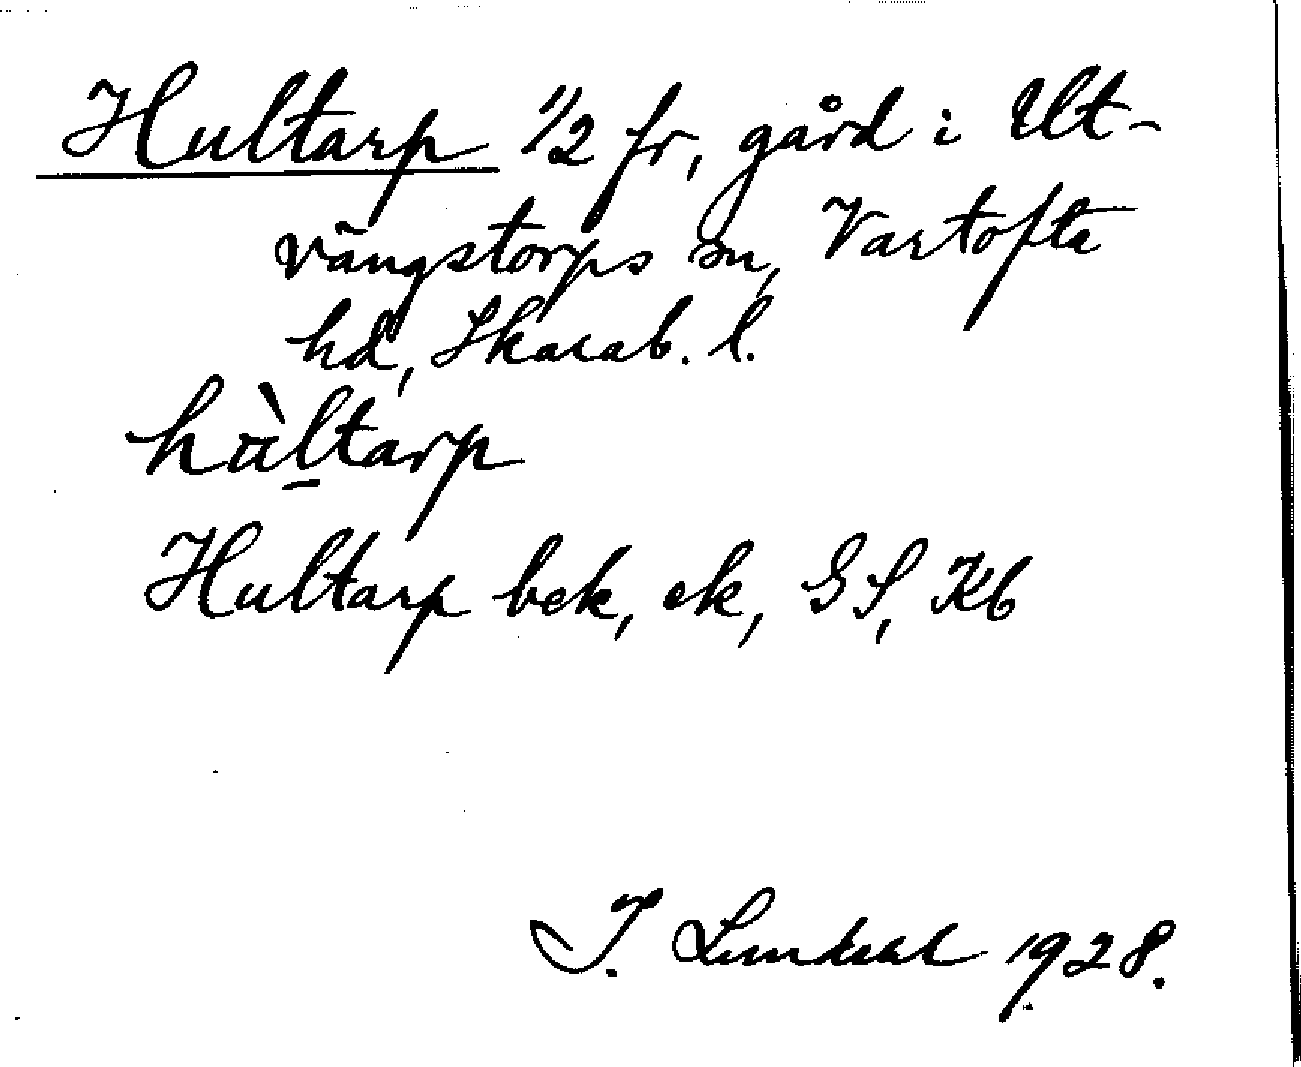 Hultarp 1/2 fr, gård i Ut-
vängstorps sn, Vartofta
hd, Skarab. l.
hùltarp
Hultarp bek, ek, GS, Kb
I. Lundahl 1928.